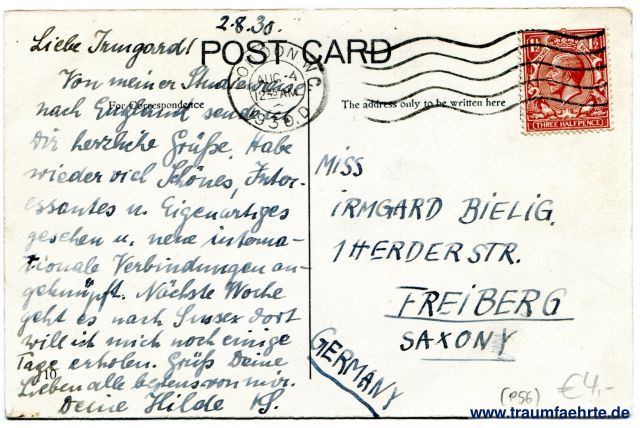 2.8.30.
Liebe Irmgard!
POST CARD
LONDON W.C.
AUG 4
12 AM
1930
1½
(THREE HALFPENCE)
For Correspondence
The address only to be written here
Von meiner Studienreise
nach England sende
Dir herzliche Grüße. Habe
wieder viel Schönes, Inter-
essantes u. Eigenartiges
gesehen u. neue interna-
tionale Verbindungen an-
geknüpft. Nächste Woche
geht es nach Sussex dort
will ich mich noch einige
Tage erholen. Grüß Deine
Lieben alle bestens von mir.
Deine Hilde
10
MISS
IRMGARD BIELIG.
1 HERDERSTR.
FREIBERG
SAXONY
GERMANY
(P56) €4,-
www.traumfaehrte.de